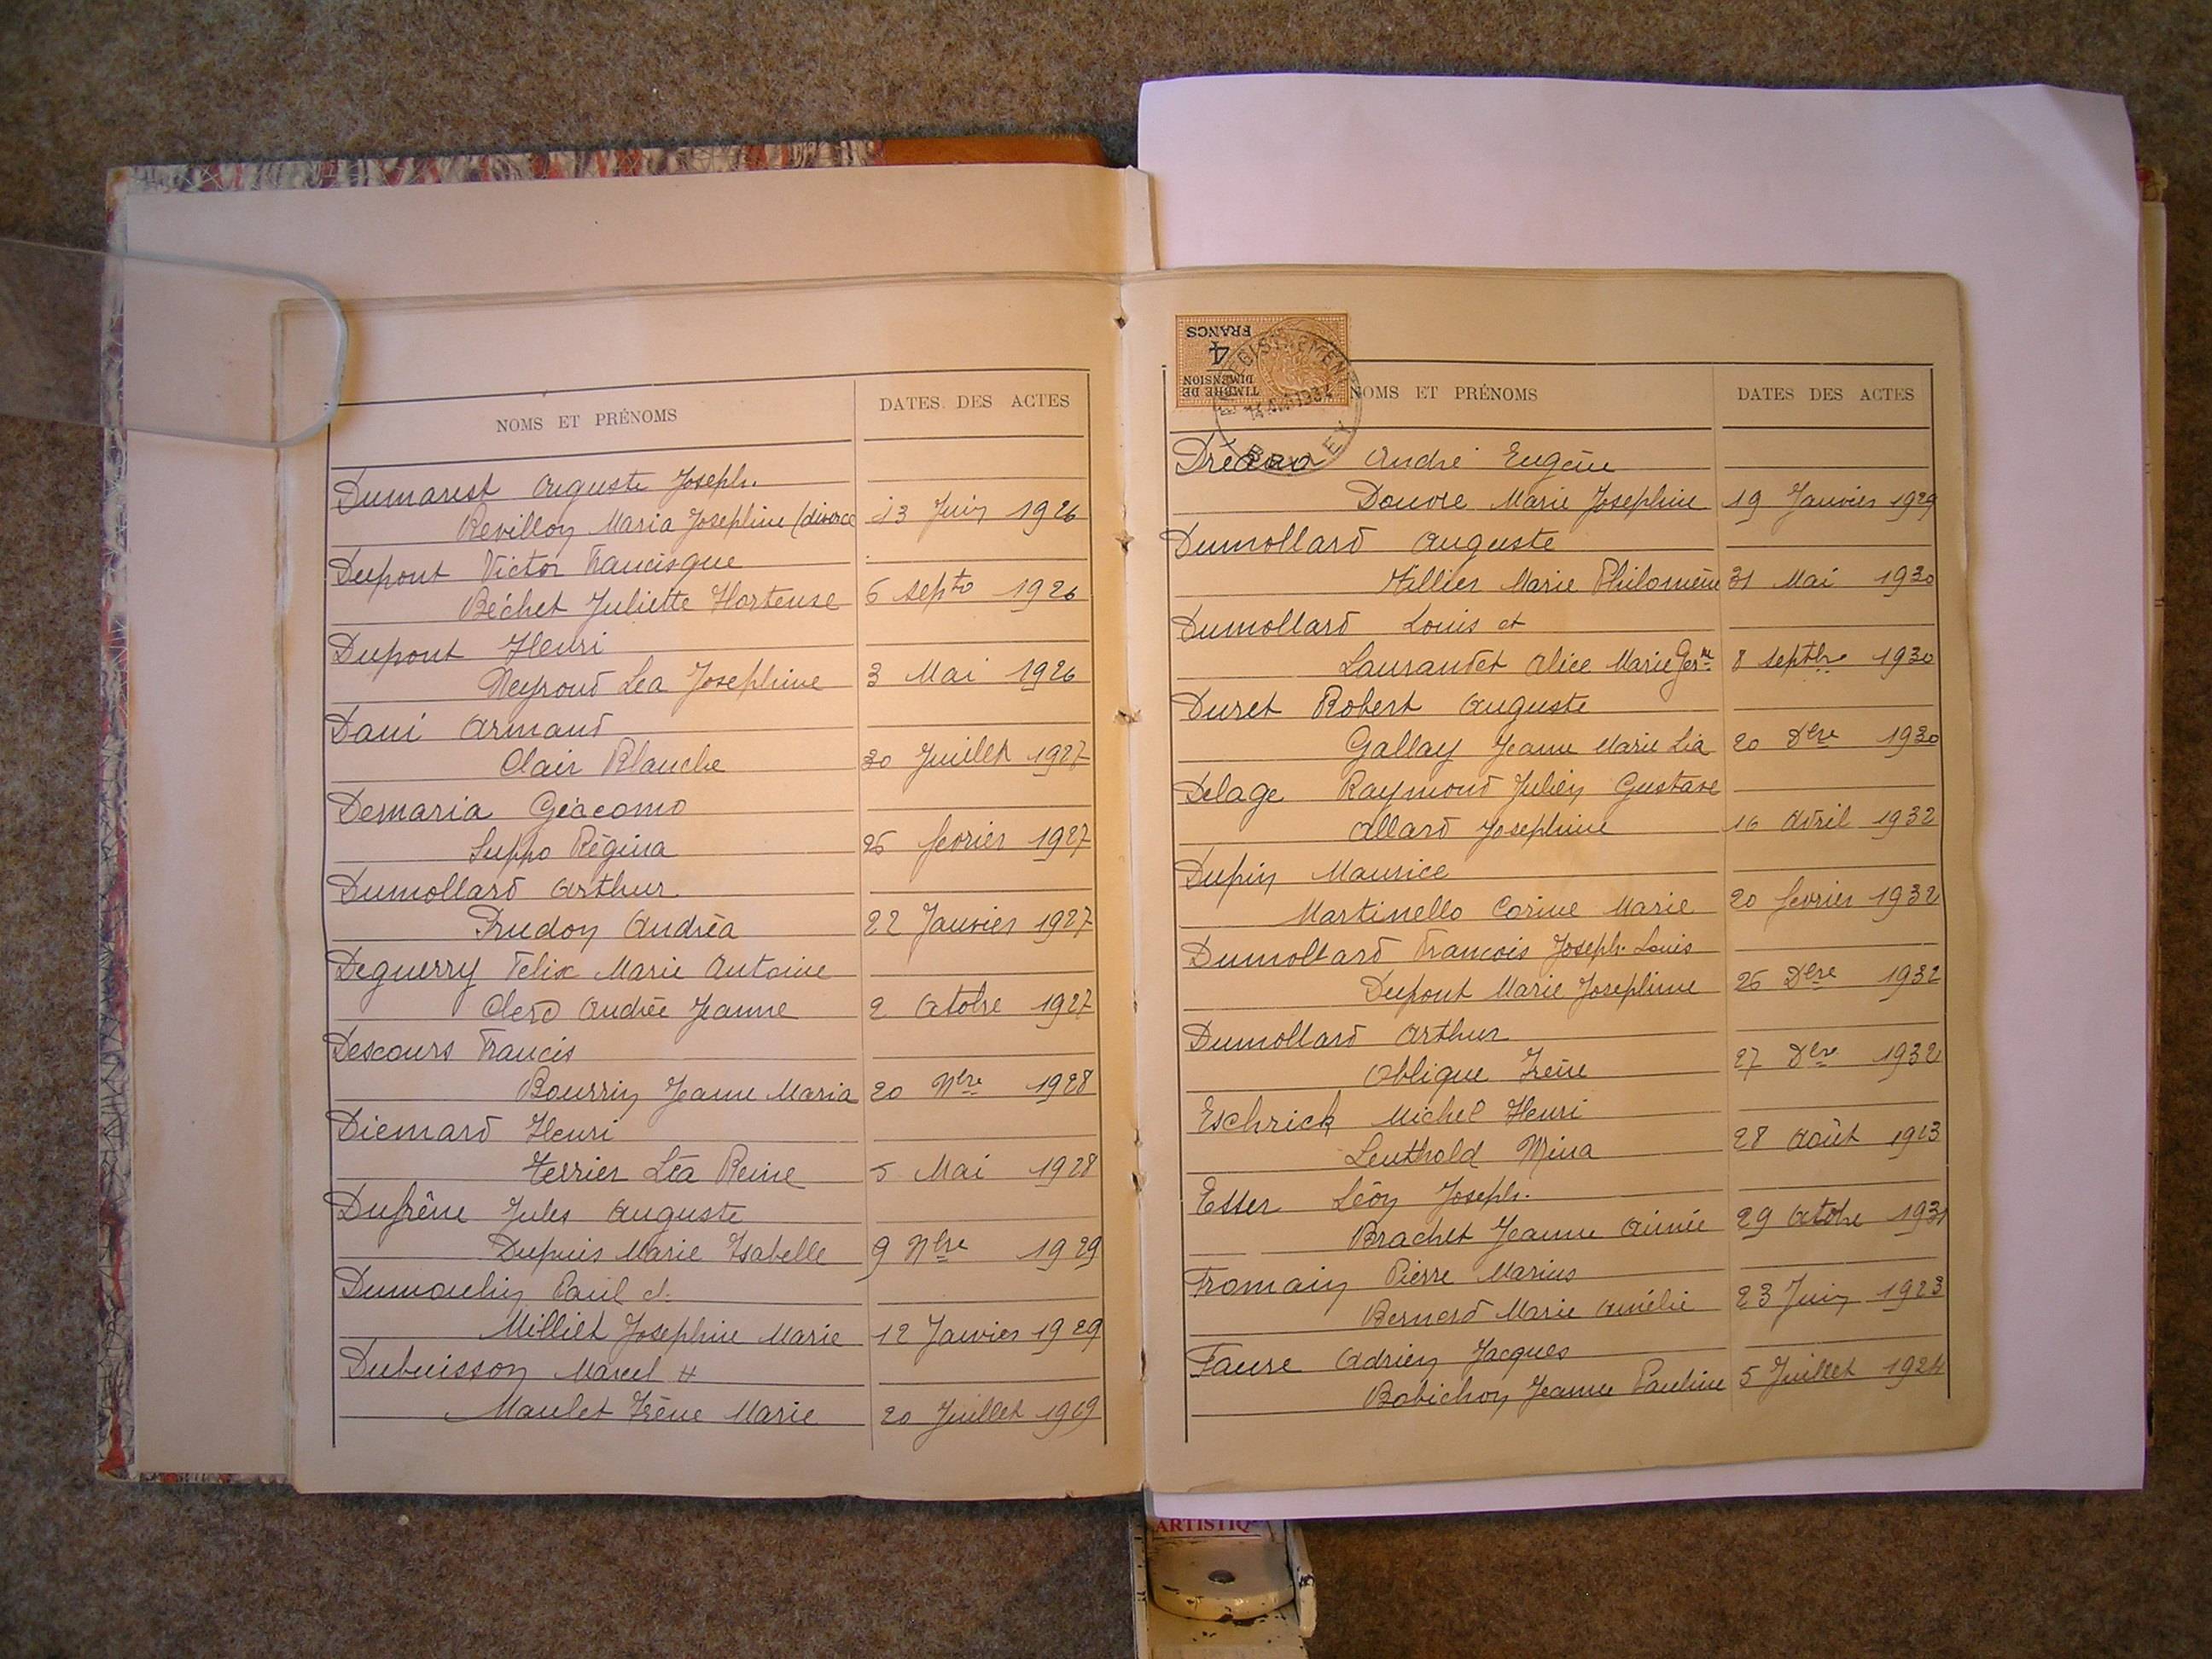 NOMS ET PRÉNOMS DATES DES ACTES
Dumarest Auguste Joseph.
Revillon Maria Josephine (divorce 13 Juin 1926
Dupont Victor Francisque
Béchet Juliette Hortense 6 Septb 1926
Dupont Henri
Neyroud Lea Josephine 3 Mai 1926
Dani Armand
Clair Blanche 30 Juillet 1927
Demaria Géacomo
Suppo Régina 26 fevrier 1927
Dumollard Arthur
Prudon Andréa 22 Janvier 1927
Deguerry Felix Marie Antoine
Clerc Andrée Jeanne 2 Octobre 1927
Descours Francis
Bourrin Jeanne Maria 20 Nbre 1928
Diemard Henri
Terrier Léa Reine 5 Mai 1928
Dufrêne Jules Auguste
Dupuis Marie Isabelle 9 Nbre 1929
Dumoulin Paul et
Milliet Josephine Marie 12 Janvier 1929
Dubuisson Marcel
Maulet Irène Marie 20 Juillet 1929
TIMBRE DE DIMENSION
4
FRANCS
ENREGISTREMENT
1932
BELLEY
NOMS ET PRÉNOMS DATES DES ACTES
André Eugène
Douvre Marie Josephine 19 Janvier 1929
Dumollard Auguste
Millier Marie Philomène 31 Mai 1930
Dumollard Louis et
Laurandet Alice Marie Gerne 8 Septbre 1930
Duret Robert Auguste
Gallay Jeanne Marie Léa 20 Dbre 1930
Delage Raymond Julien Gustave
Allard Josephine 16 Avril 1932
Dupin Maurice
Martinello Corine Marie 20 fevrier 1932
Dumollard Francois Joseph Louis
Dupont Marie Josephine 26 Dbre 1932
Dumollard Arthur
Oblique Irène 27 Dbre 1932
Eschrick Michel Henri
Leuthold Mina 28 Août 1923
Esser Léon Joseph.
Brachet Jeanne Aimée 29 Octobre 1931
Fromain Pierre Marius
Bernard Marie Amélie 23 Juin 1923
Faure Adrien Jacques
Bobichon Jeanne Pauline 5 Juillet 1924
ARTISTIQ